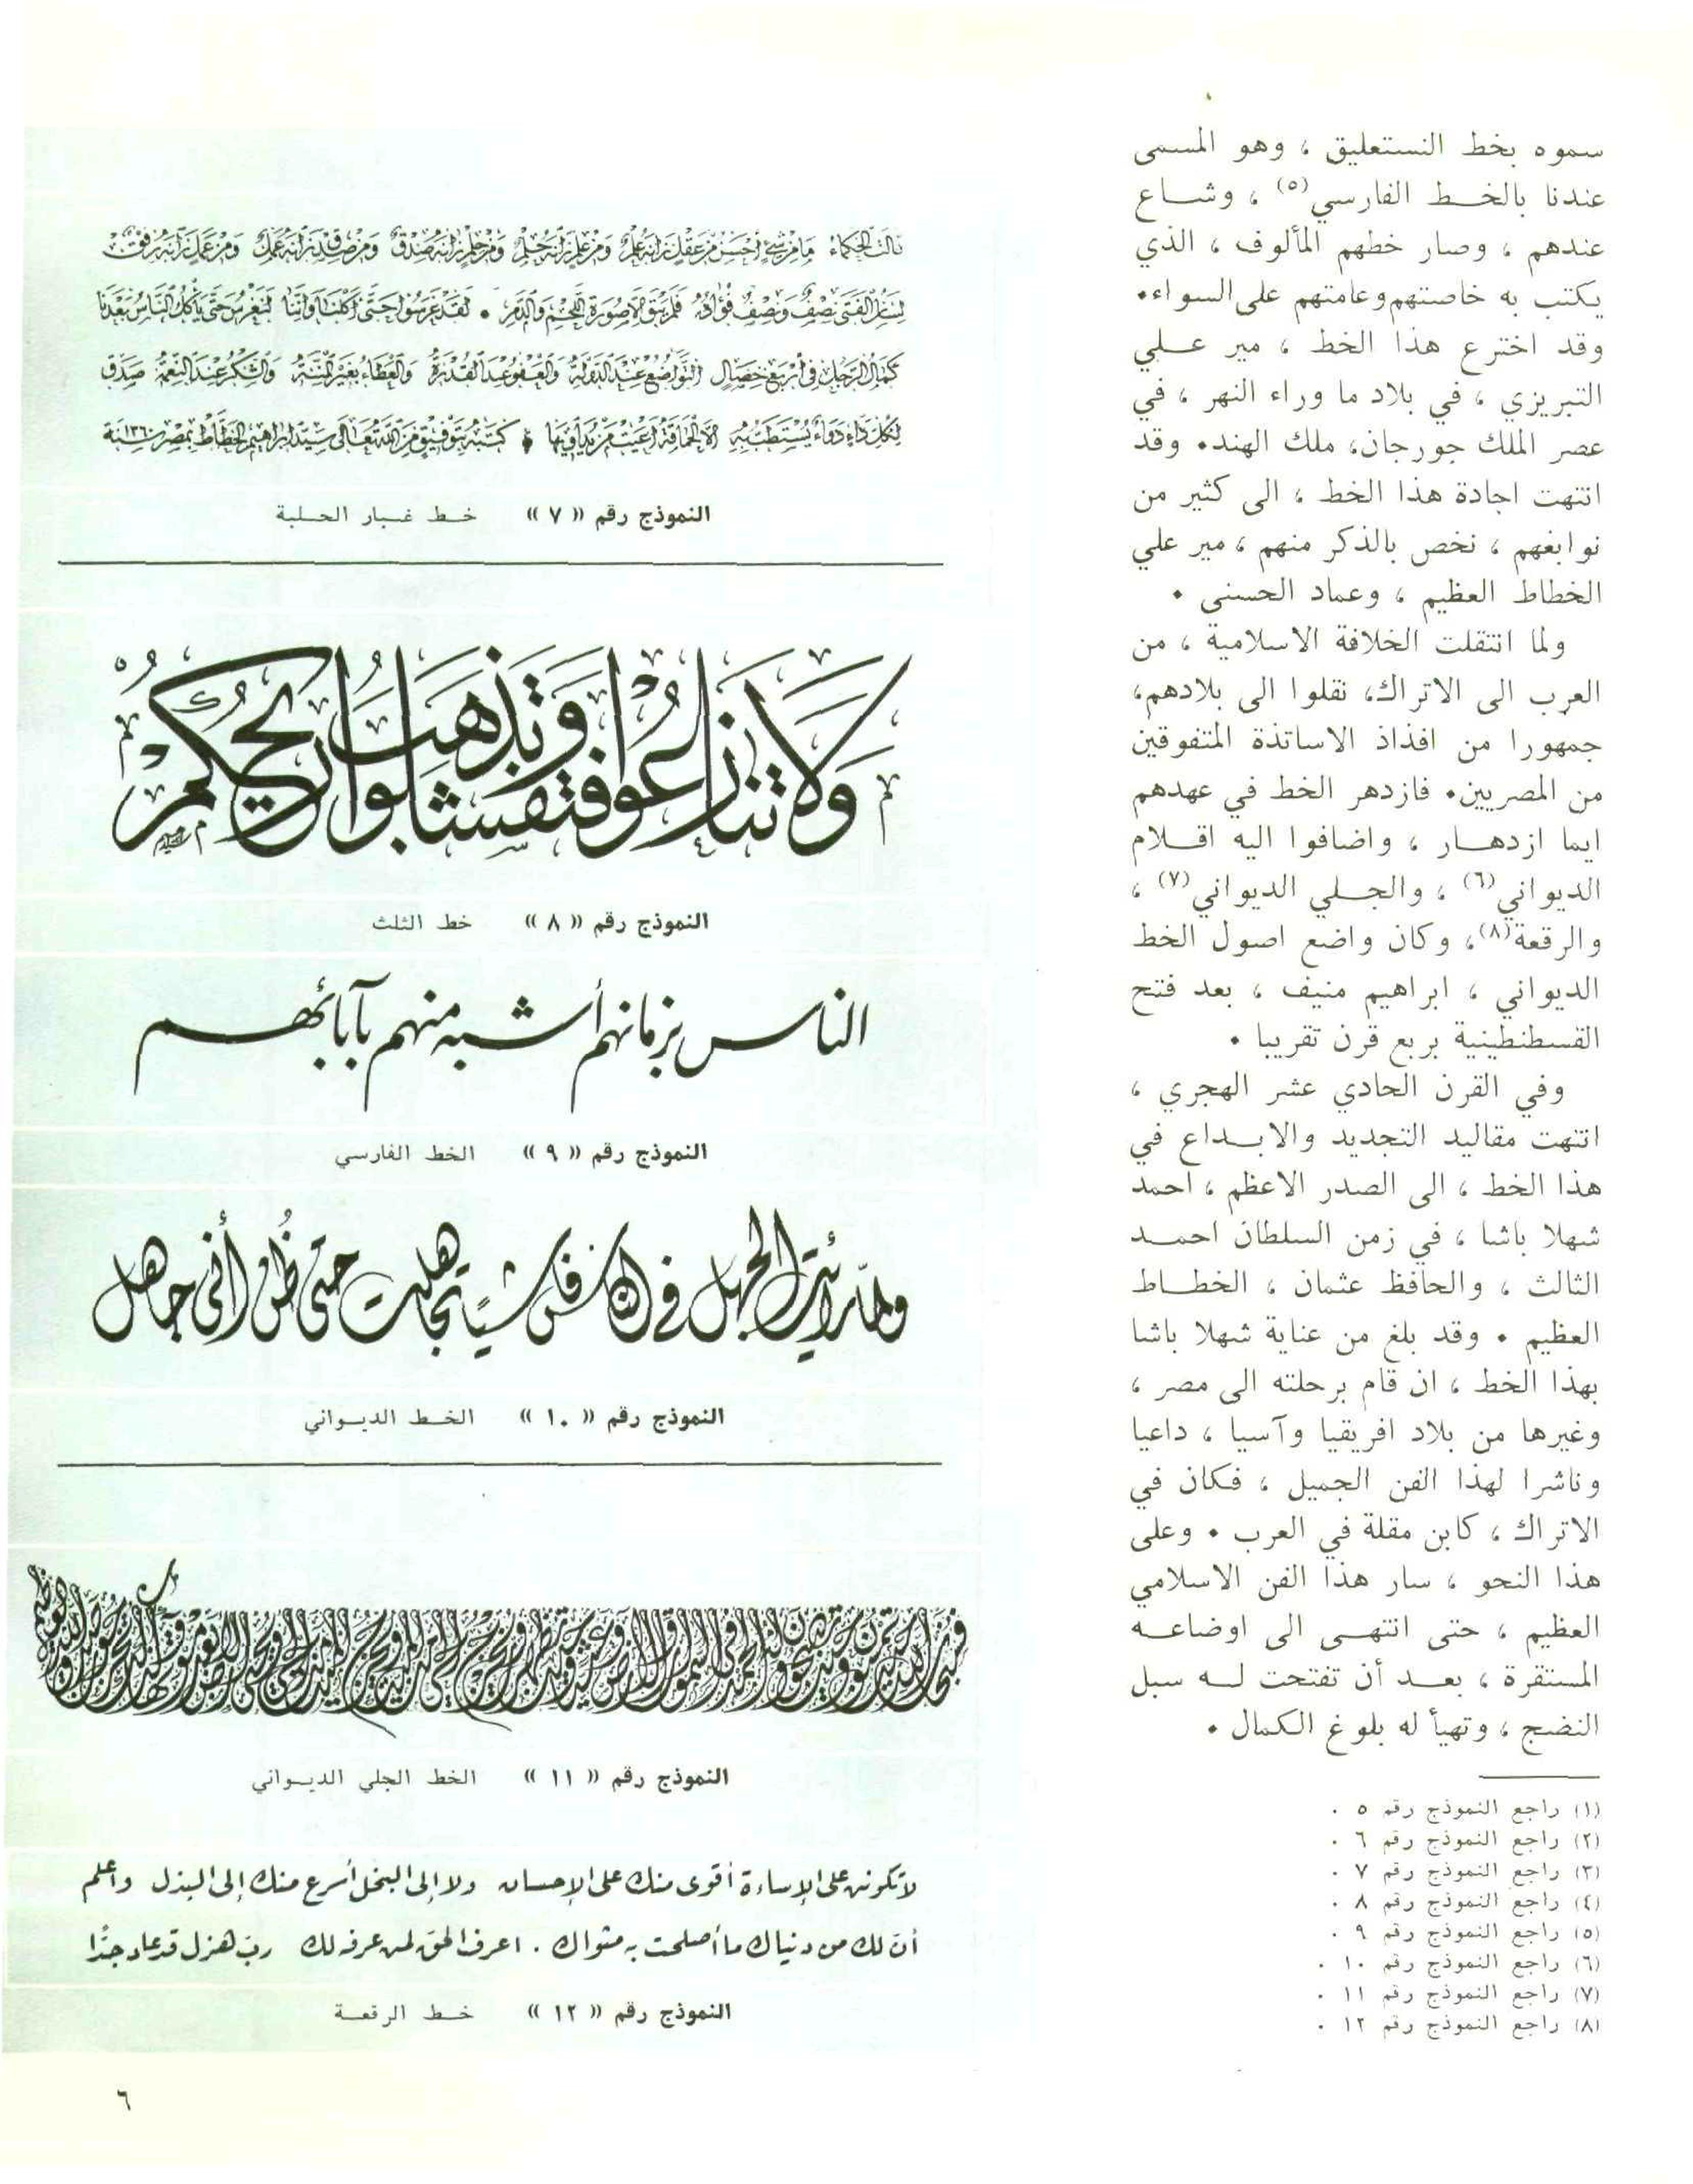 سموه بخط النستعليق ، وهو المسمى
عندنا بالخـــط الفارسي(٥) ، وشـــاع
عندهم ، وصار خطهم المألوف ، الذي
يكتب به خاصتهم وعامتهم على السواء.
وقد اخترع هذا الخط ، مير عـــلي
التبريزي ، في بلاد ما وراء النهر ، في
عصر الملك جورجان، ملك الهند. وقد
انتهت اجادة هذا الخط ، الى كثير من
نوابغهم ، نخص بالذكر منهم ، مير علي
الخطاط العظيم ، وعماد الحسنى .
ولما انتقلت الخلافة الاسلامية ، من
العرب الى الاتراك، نقلوا الى بلادهم،
جمهورا من افذاذ الاساتذة المتفوقين
من المصريين. فازدهر الخط في عهدهم
ايما ازدهـــار ، واضافوا اليه اقـــلام
الديواني(٦) ، والجـــلي الديواني(٧) ،
والرقعة(٨)، وكان واضع اصول الخط
الديواني ، ابراهيم منيف ، بعد فتح
القسطنطينية بربع قرن تقريبا .
وفي القرن الحادي عشر الهجري ،
انتهت مقاليد التجديد والابـــداع في
هذا الخط ، الى الصدر الاعظم ، احمد
شهلا باشا ، في زمن السلطان احمـــد
الثالث ، والحافظ عثمان ، الخطـــاط
العظيم . وقد بلغ من عناية شهلا باشا
بهذا الخط ، ان قام برحلته الى مصر ،
وغيرها من بلاد افريقيا وآسيا ، داعيا
وناشرا لهذا الفن الجميل ، فـكان في
الاتراك ، كابن مقلة في العرب . وعلى
هذا النحو ، سار هذا الفن الاسلامي
العظيم ، حتى انتهـــى الى اوضاعـــه
المستقرة ، بعـــد أن تفتحت لـــه سبل
النضج ، وتهيأ له بلوغ الكمال .
(١) راجع النموذج رقم ٥ .
(٢) راجع النموذج رقم ٦ .
(٣) راجع النموذج رقم ٧ .
(٤) راجع النموذج رقم ٨ .
(٥) راجع النموذج رقم ٩ .
(٦) راجع النموذج رقم ١٠ .
(٧) راجع النموذج رقم ١١ .
(٨) راجع النموذج رقم ١٢ .
قالت الحكماء ما من شيء أحسن من عقل زانه علم ومن علم زانه حلم ومن حلم زانه صدق ومن صدق زانه عمل ومن عمل زانه رفق
لسان الفتى نصف ونصف فؤاده فلم يبق إلا صورة اللحم والدم . لقد غرسوا حتى أكلنا وإننا لنغرس حتى يأكل الناس بعدنا
كمال الرجل في أربع خصال التواضع عند الدولة والعفو عند القدرة والعطاء بغير المنة والشكر عند النعمة صدق
لكل داء دواء يستطب به إلا الحماقة أعيت من يداويها كتبه بتوفيق من الله تعالى سيد ابراهيم الخطاط بمصر سنة ١٣٦٠
النموذج رقم « ٧ » خـــط غبـار الحـلبة
ولا تنازعوا فتفشلوا وتذهب ريحكم
النموذج رقم « ٨ » خط الثلث
الناس بزمانهم أشبه منهم بآبائهم
النموذج رقم « ٩ » الخط الفارسي
ولما رأيت الجهل في الناس فاشيا تجاهلت حتى ظُن أني جاهل
النموذج رقم « ١٠ » الخـــط الديـــواني
النموذج رقم « ١١ » الخط الجلي الديـواني
لا تكونن على الإساءة أقوى منك على الإحسان ولا إلى البخل أسرع منك إلى البذل واعلم
أن لك من دنياك ما أصلحت به مثواك . اعرف الحق لمن عرفه لك رب هزل قد عاد جدًا
النموذج رقم « ١٢ » خـــط الرقعـــة
٦